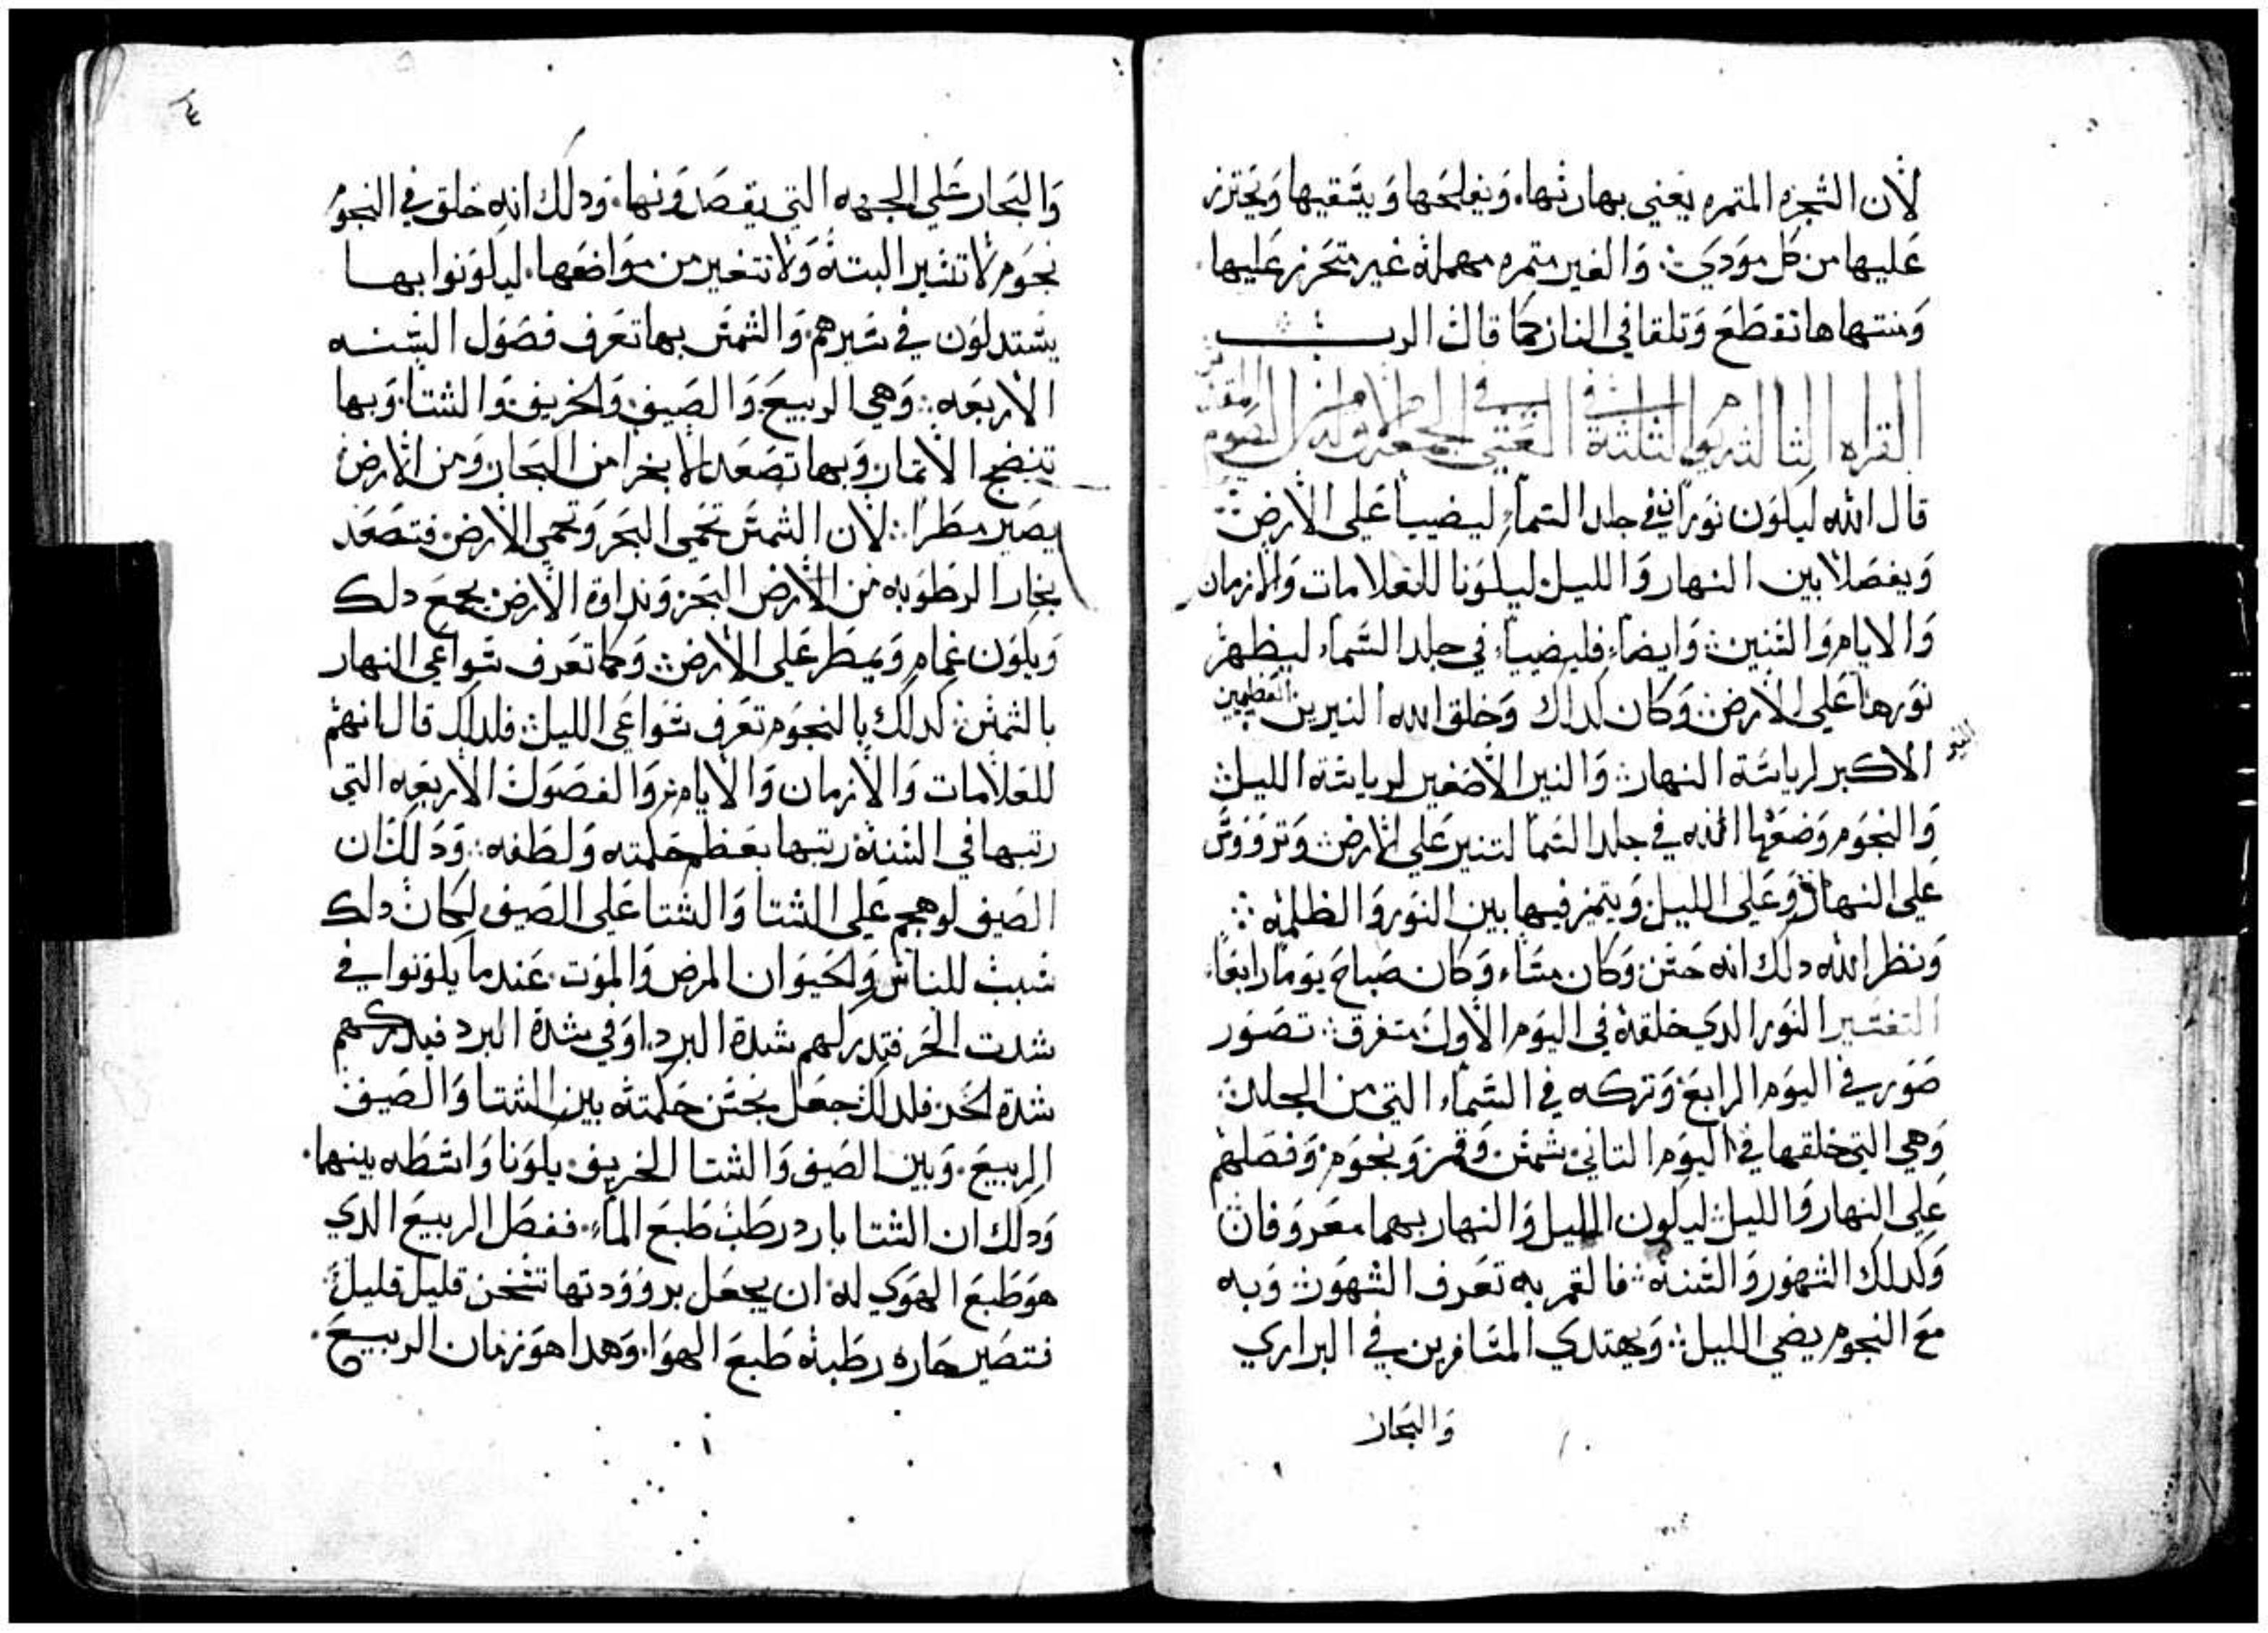 لان الشجره المتمره يعني بها ربها. ويفلحها ويسقيها ويحترز
عليها من كل مودي. والغير متمره مهمله غير متحرز عليها
ومنتهاها تقطع وتلقا في النار كما قال الرب
القراه الثالثه
قال الله ليكون نوران في جلد السماء ليضيا على الارض
ويفصلا بين النهار والليل ليكونا للعلامات والازمان
والايام والسنين وايضاء فليضياء في جلد السماء ليظهر
نورها على الارض وكان كداك وخلق الله النيرين العظيمين
النير
الاكبر لرياسة النهار والنير الاصغير لرياسة الليل
والنجوم وضعها الله في جلد السما لتنير على الارض وترووس
على النهار وعلى الليل ويتميز فيها بين النور والظلمه
ونظر الله دلك انه حسن وكان مساء وكان صباح يوما رابعا
التفسير النور الدي خلقه في اليوم الاول متفرق تصور
صور في اليوم الرابع وتركه في السماء التي من الجلد
وهي التي خلقها في اليوم التاني شمس وقمر ونجوم وفصلهم
على النهار والليل ليكون الليل والنهار بهما معروفان
وكدلك الشهور والسنه فالقمر به تعرف الشهور وبه
مع النجوم يضي الليل ويهتدي المسافرين في البراري
والبحار
والبحار على الجهه التي يقصدونها. ودلك انه خلق في النجوم
نجوم لا تسير البته ولا تتغير من مواضعها. ليكونوا بها
يستدلون في سيرهم والشمس بها تعرف فصول السنه
الاربعه وهي الربيع والصيف والخريف والشتا وبها
تنضج الاتمار وبها تصعد الابخرا من البحار ومن الارض
يصير مطرا لان الشمس تحمي البحر وتحمي الارض فتصعد
بخار الرطوبه من الارض البحر ونداوة الارض يجمع دلك
ويكون غمام ويمطر على الارض وكما تعرف سواعي النهار
بالشمس كدلك بالنجوم تعرف سواعي الليل فلدلك قال انهم
للعلامات والازمان والايام والفصول الاربعه التي
رتبها في السنه رتبها بعظم حكمته ولطفه ودلك ان
الصيف لو هجم على الشتا والشتا على الصيف لكان دلك
سبب للناس والحيوان المرض والموت. عند ما يكونوا في
شدت الحر فتدركهم شدة البرد. او في شدة البرد فيدركهم
شدة الحر فلدلك جعل بحسن حكمته بين الشتا والصيف
الربيع. وبين الصيف والشتا الخريف يكونا واسطه بينهما.
ودلك ان الشتا بارد رطب طبع الماء. ففصل الربيع الدي
هو طبع الهوي له ان يجعل برووودتها تسخن قليل قليل
فتصير حاره رطبه طبع الهوا. وهدا هو زمان الربيع.